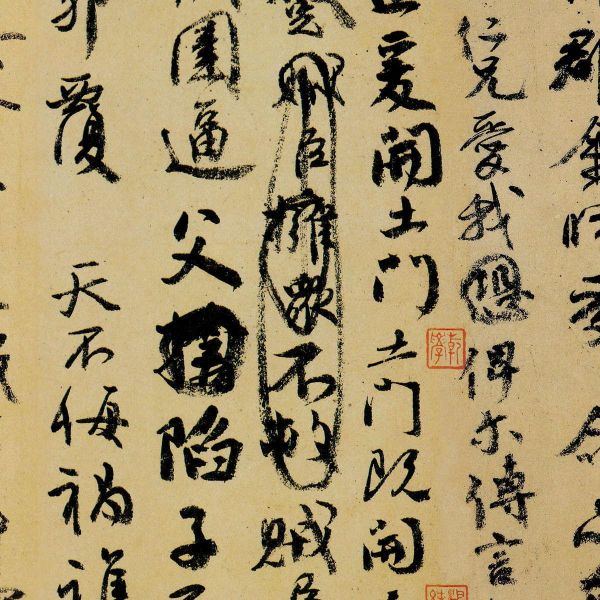 郡余時受命亦
仁兄愛我恐俾尔傳言
爰開土門土門既開
賊臣擁衆不救賊臣
圍逼父陷子
卵覆天不悔禍誰
乾學